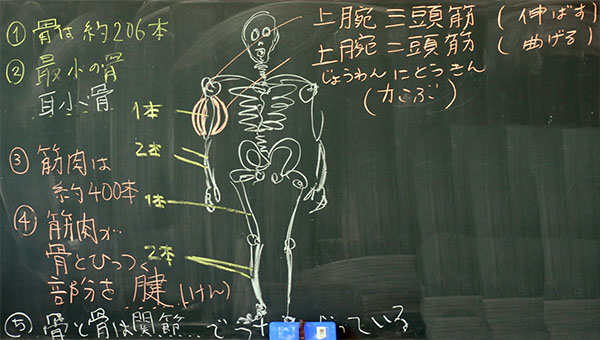 ① 骨は約206本
② 最小の骨
耳小骨
③ 筋肉は
約400本
④ 筋肉が
骨とひっつく
部分を腱(けん)
⑤ 骨と骨は関節
っている
1本
2本
1本
2本
上腕三頭筋(伸ばす)
上腕二頭筋(曲げる)
じょうわんにとうきん
(力こぶ)